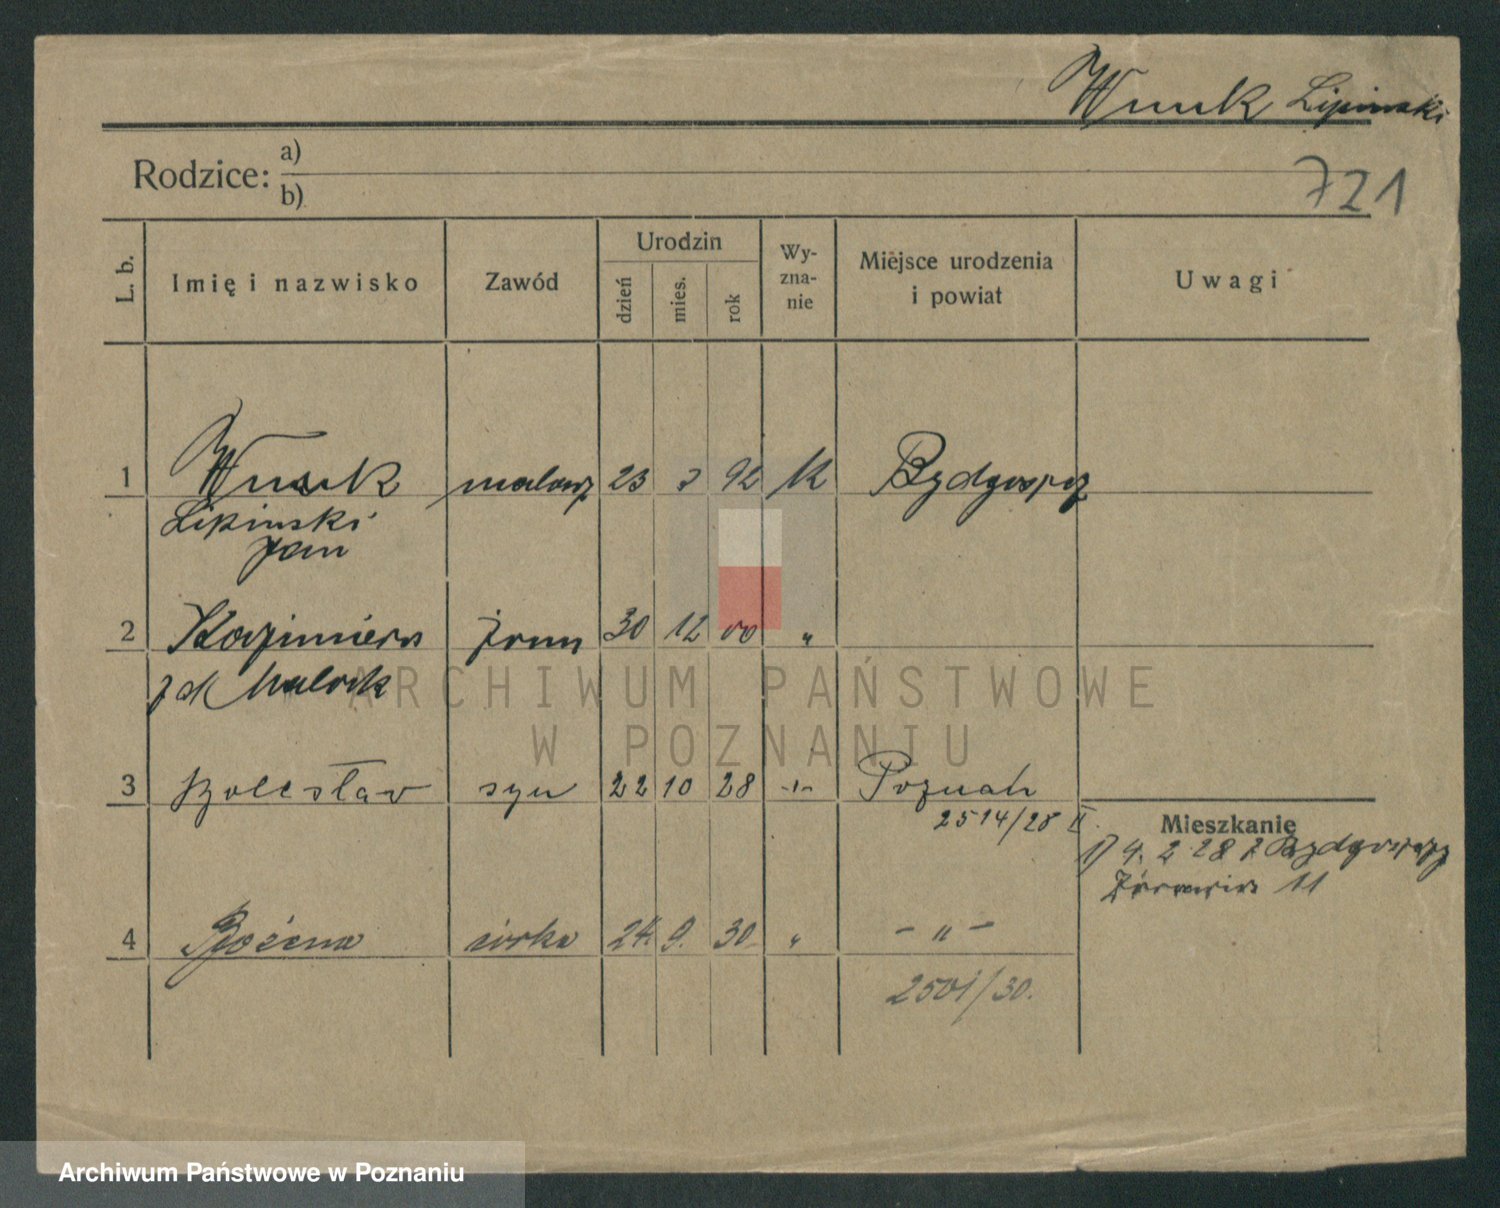 Wnuk Lipinski
721
Rodzice: a)
b)
L. b.
Imię i nazwisko
Zawód
Urodzin
dzień
mies.
rok
Wy-
zna-
nie
Miejsce urodzenia
i powiat
Uwagi
1 Wnuk malarz 23 92 K Bydgoszcz
Lipinski
Jan
2 Kazimiera żona 30 12 00 "
z d
3 Bolesław syn 22 10 28 -"- Poznań
2514/28 II.
Mieszkanie
1) 4. 2 28 z Bydgoszczy
11
4 Bożena córka 24. 9. 30 " - " -
2501/30.
ARCHIWUM PAŃSTWOWE
W POZNANIU
Archiwum Państwowe w Poznaniu